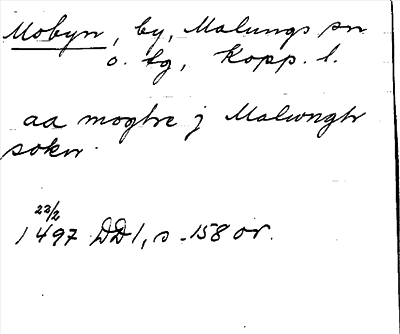 Mobyn, by, Malungs sn
o. tg, Kopp. l.
aa moghre j Malwngh
sokn
22/2
1497 DD1, s. 158 or.